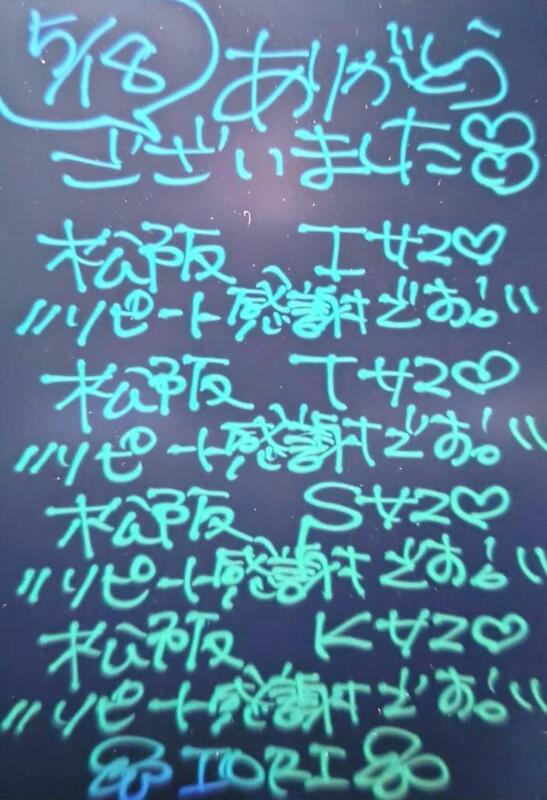 5/18 ありがとう
ございました♡♡
松阪 Iサマ♡
〃リピート感謝です!〃
松阪 Tサマ♡
〃リピート感謝です!〃
松阪 Sサマ♡
〃リピート感謝です!〃
松阪 Kサマ♡
〃リピート感謝です!〃
IORI